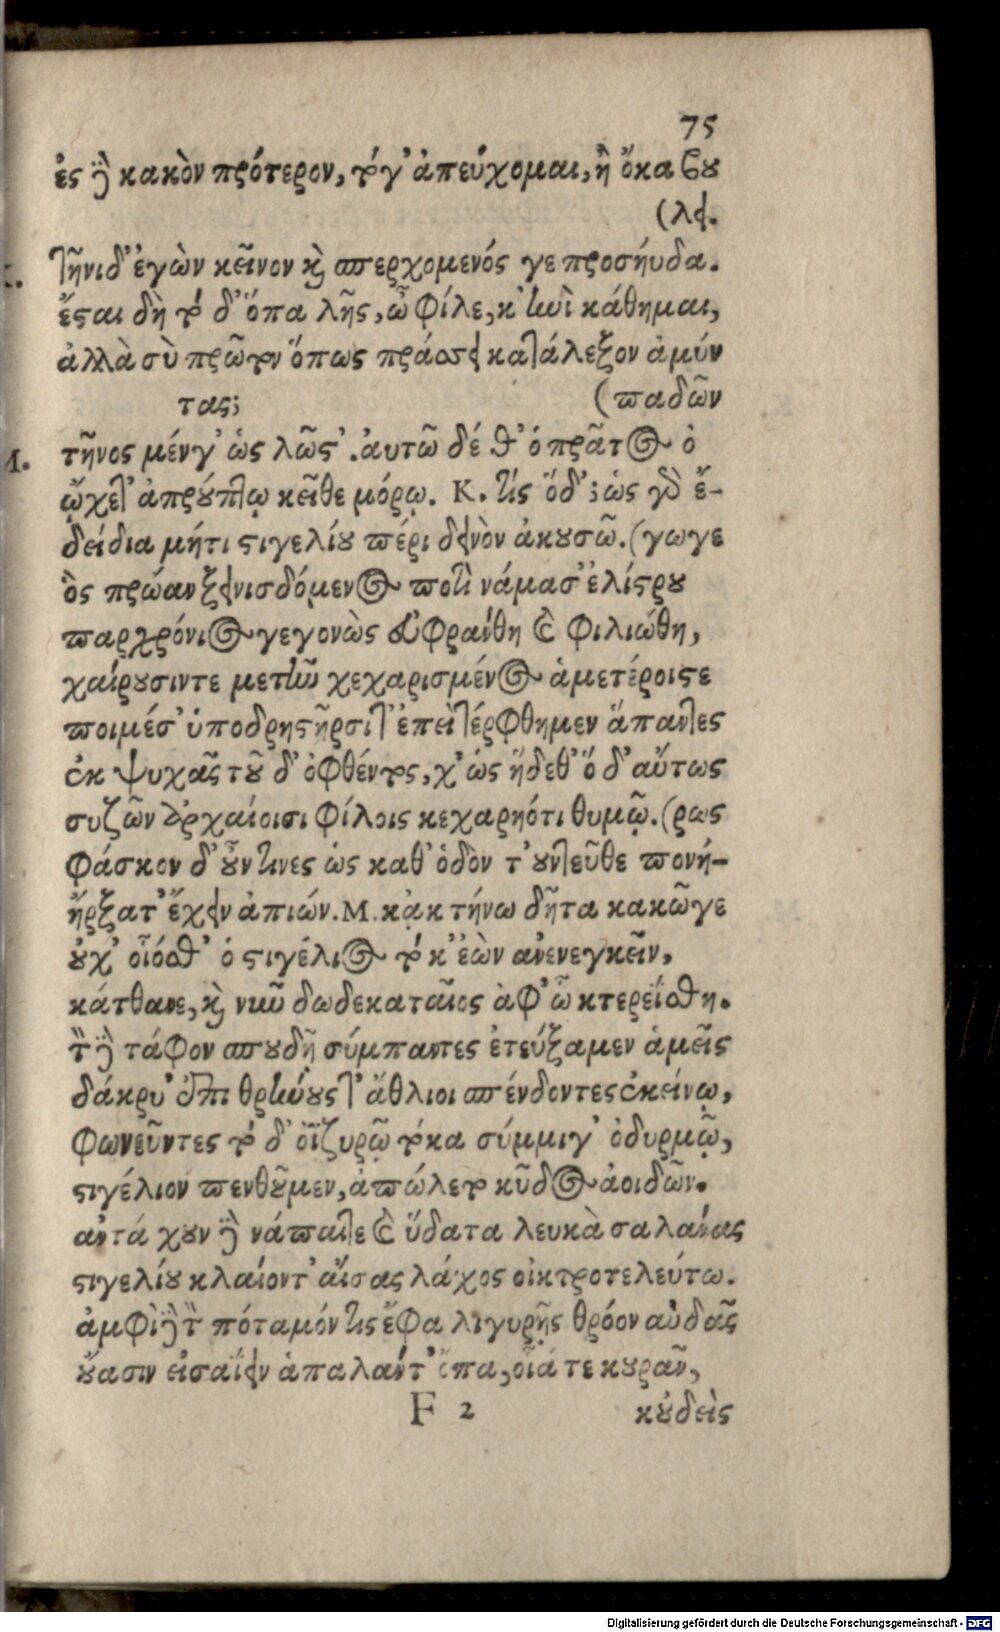 75
ἐς ὃ κακὸν πρότερον, τό γ' ἀπεύχομαι, ἢ ὅκα βου
(λει.
τῆνι δ' ἐγὼν κεῖνον καὶ σπερχομενός γε προσηύδα.
ἔσαι δὴ τό δ' ὅπα λῇς, ὦ φίλε, κἢν κάθημαι,
ἀλλὰ σὺ πρῶτον ὅπως πράσσει κατάλεξον ἀμύν
τας; (παδῶν
Μ. τῆνος μέν γ' ὡς λῶσ'. αὐτῶ δέ θ' ὁ πρᾶτος ὁ
ᾤχετ' ἀπρόπτῳ κεῖθε μόρῳ. Κ. τίς ὅδ'; ὡς γὰρ ἔ-
δείδια μήτι στιγελίου πέρι δεινὸν ἀκουσῶ. (γωγε
ὃς πρώαν ξεινισδόμενος ποτὶ νάμασ' ἐλίστρου
παρχρόνιος γεγονὼς εὐφράνθη καὶ φιλιώθη,
χαίρουσιν τε μετῆν κεχαρισμένος ἁμετέροις τε
ποιμέσ' ὑποδρηστῆρσι τ' ἐπεὶ τέρφθημεν ἅπαντες
ἐκ ψυχᾶς τοῦ δ' ὀφθέντος, χ' ὡς ἥδεθ' ὅ δ' αὔτως
συζῶν ἀρχαίοισι φίλοις κεχαρηότι θυμῷ. (ρως
φάσκον δ' οὖν τινες ὡς καθ' ὁδὸν τ' ουντεῦθε πονή-
ἤρξατ' ἔχειν ἀπιών. Μ. κἀκ τήνω δῆτα κακῶγε
οὐχ' οἷόσθ' ὁ στιγέλιος τό κ' ἐὼν ἀνενεγκεῖν,
κάτθανε, καὶ νῦν δωδεκαταῖος ἀφ' ὧ κτερεΐσθη.
τῷ τάφον σπουδῇ σύμπαντες ἐτεύξαμεν ἁμεῖς
δάκρυ' ἐπι θρήνους τ' ἄθλιοι σπένδοντες ἐκείνῳ,
φωνεῦντες τό δ' ὀϊζυρῷ τόκα σύμμιγ' ὀδυρμῷ,
στιγέλιον πενθοῦμεν, ἀπώλετο κῦδος ἀοιδῶν.
νάπαι τε καὶ ὕδατα λευκὰ σαλαίνας
στιγελίου κλαίοντ' αἴσας λάχος οἰκτροτελεύτω.
πόταμόν τις ἔφα λιγυρῆς θρόον αὐδᾶς
οὔασιν εἰσαΐειν ἁπαλάντ' ἔπα, οἷά τε κουρᾶν,
F 2 κοὐδεὶς
Digitalisierung gefördert durch die Deutsche Forschungsgemeinschaft - DFG